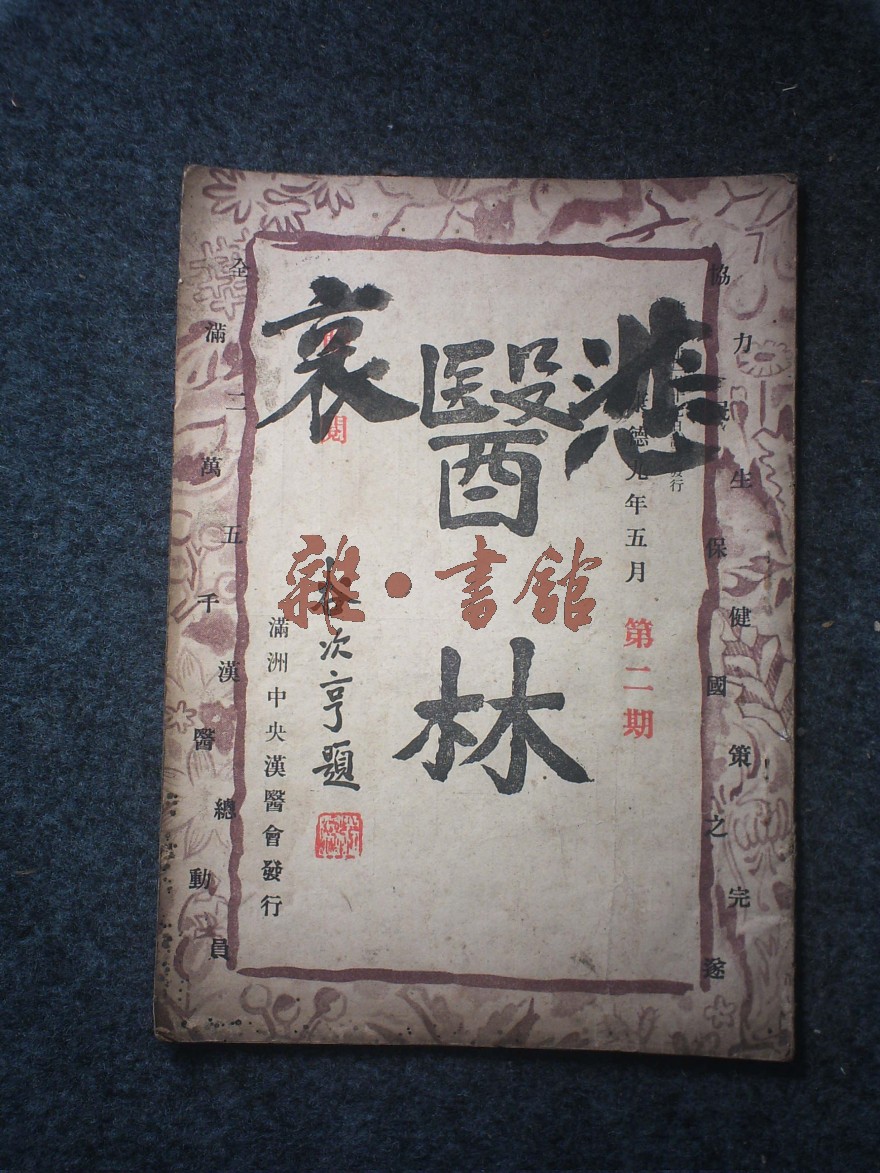 協力生保健國策之完遂
發行
德九年五月
第二期
悲
醫林
哀
次亨題
滿洲中央漢醫會發行
全滿二萬五千漢醫總動員
雜·書館